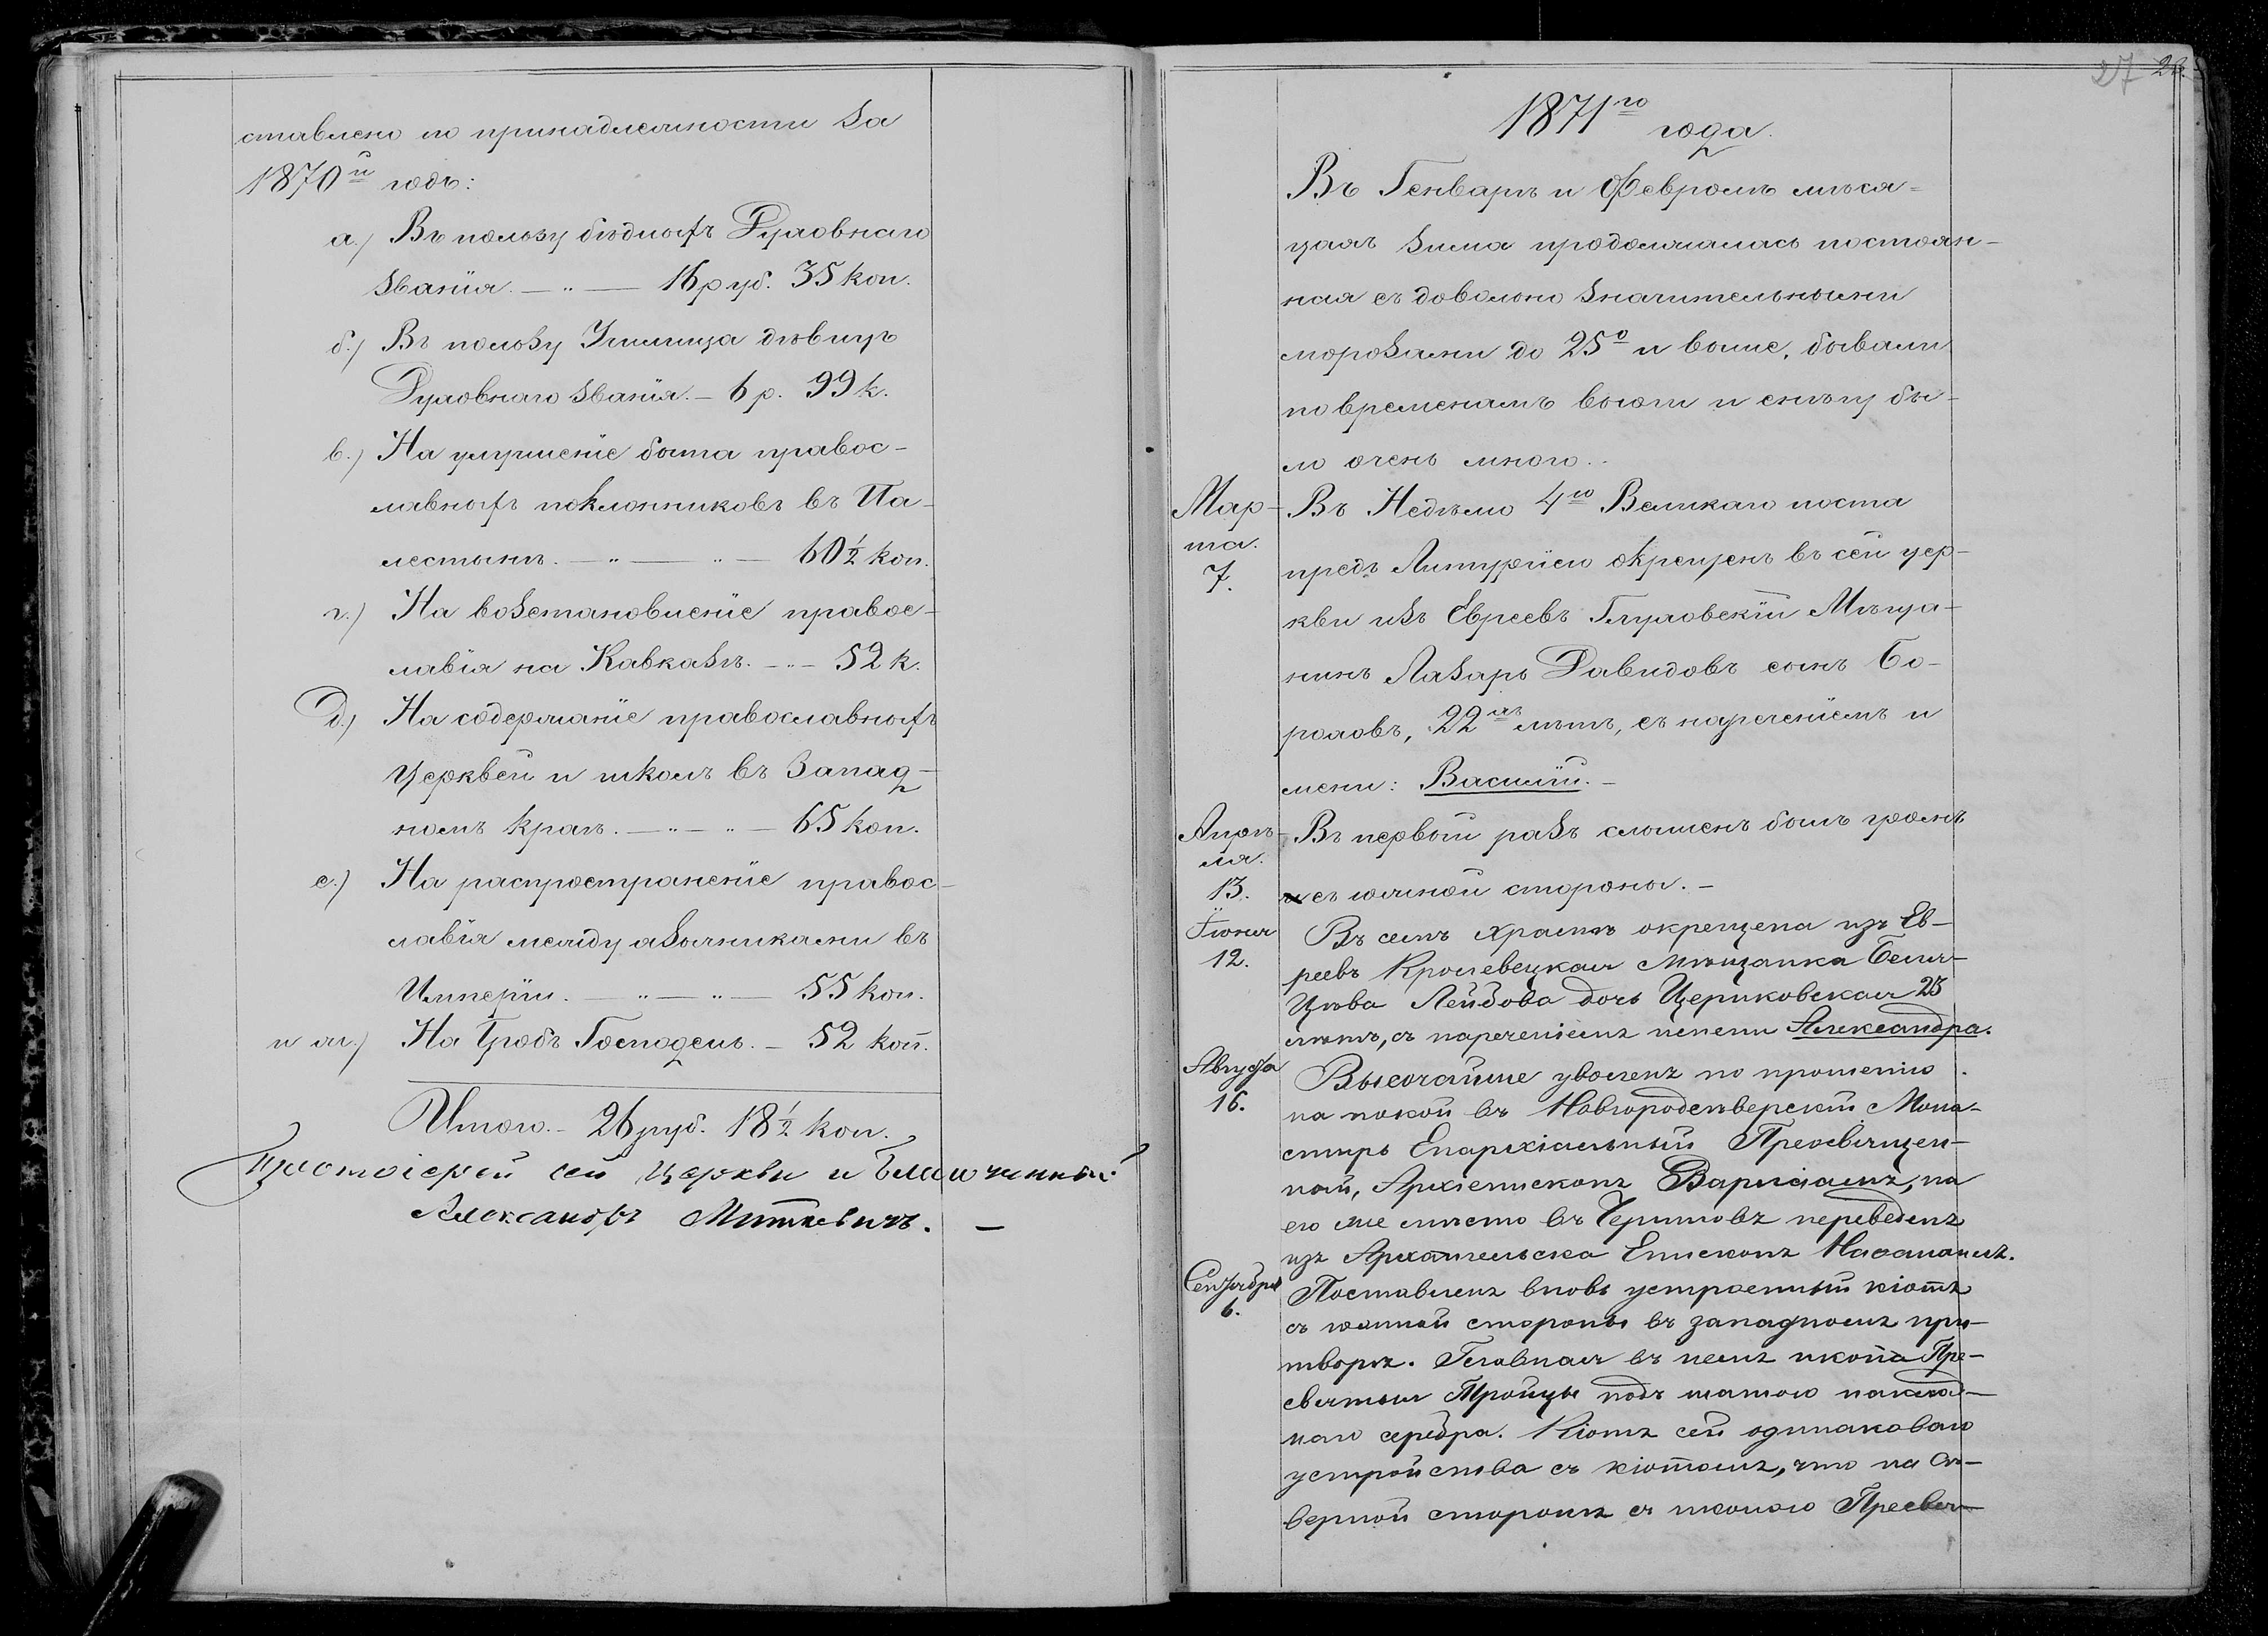 ставлено по принадлежности за
1870й годъ:
а.) Въ пользу бѣдныхъ Духовнаго
званія. — „ — 16 руб. 35 коп.
б.) Въ пользу Училища дѣвицъ
Духовнаго званія. — 6 р. 99 к.
в.) На улучшеніе быта правос-
лавныхъ поклонниковъ въ Па-
лестинѣ. — „ — „ — 60 ½ коп.
г.) На возстановленіе правос-
лавія на Кавказѣ. — „ — 52 к.
д.) На содержаніе православныхъ
Церквей и школъ въ Запад-
номъ краѣ. — „ — „ — 65 коп.
е.) На распространеніе правос-
лавія между язычниками въ
Имперіи. — „ — „ — 55 коп.
и ж.) На Гробъ Господень. — 52 коп.
Итого. — 26 руб. 18 ½ коп.
Протоіерей сей Церкви и Благочинный
Александръ Миткевичъ. —
27
1871го года.
Въ Генварѣ и Февралѣ мѣся-
цахъ зима продолжалась постоян-
ная съ довольно значительными
морозами до 25° и выше, бывали
по временамъ вьюги и снѣгу бы-
ло очень много.
Мар- Въ Недѣлю 4ю Великаго поста
та. предъ Литургіею окрещенъ въ сей цер-
7. кви изъ Евреевъ Глуховскій Мѣща-
нинъ Лазарь Давидовъ сынъ Бо-
роховъ, 22хъ лѣтъ, съ нареченіемъ и
мени: Василій. —
Апрѣ- Въ первый разъ слышенъ былъ громъ
ля.
13. съ южной стороны. —
Іюня Въ семъ храмѣ окрещена изъ Ев-
12. реевъ Кролевецкая мѣщанка Бейля-
Цыва Лейбова дочь Цериковская 25
лѣтъ, съ нареченіемъ имени Александра.
Августа Высочайше уволенъ по прошенію
16. на покой въ Новгородсѣверскій Мона-
стырь Епархіальный Преосвящен-
ный, Архіепископъ Варлаамъ, на
его же мѣсто въ Черниговъ переведенъ
изъ Архангельска Епископъ Наѳанаилъ.
Сентября Поставленъ вновь устроенный кіотъ
6. съ южной стороны въ западномъ при-
творѣ. Главная въ немъ икона Пре-
святыя Троицы подъ шатою наклад-
наго серебра. Кіотъ сей одинаковаго
устройства съ кіотомъ, что на сѣ-
верной сторонѣ съ иконою Пресвя-